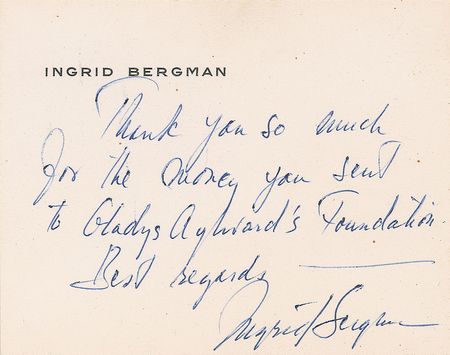 INGRID BERGMAN
Thank you so much
for the money you sent
to Gladys Aylward's Foundation.
Best regards
Ingrid Bergman